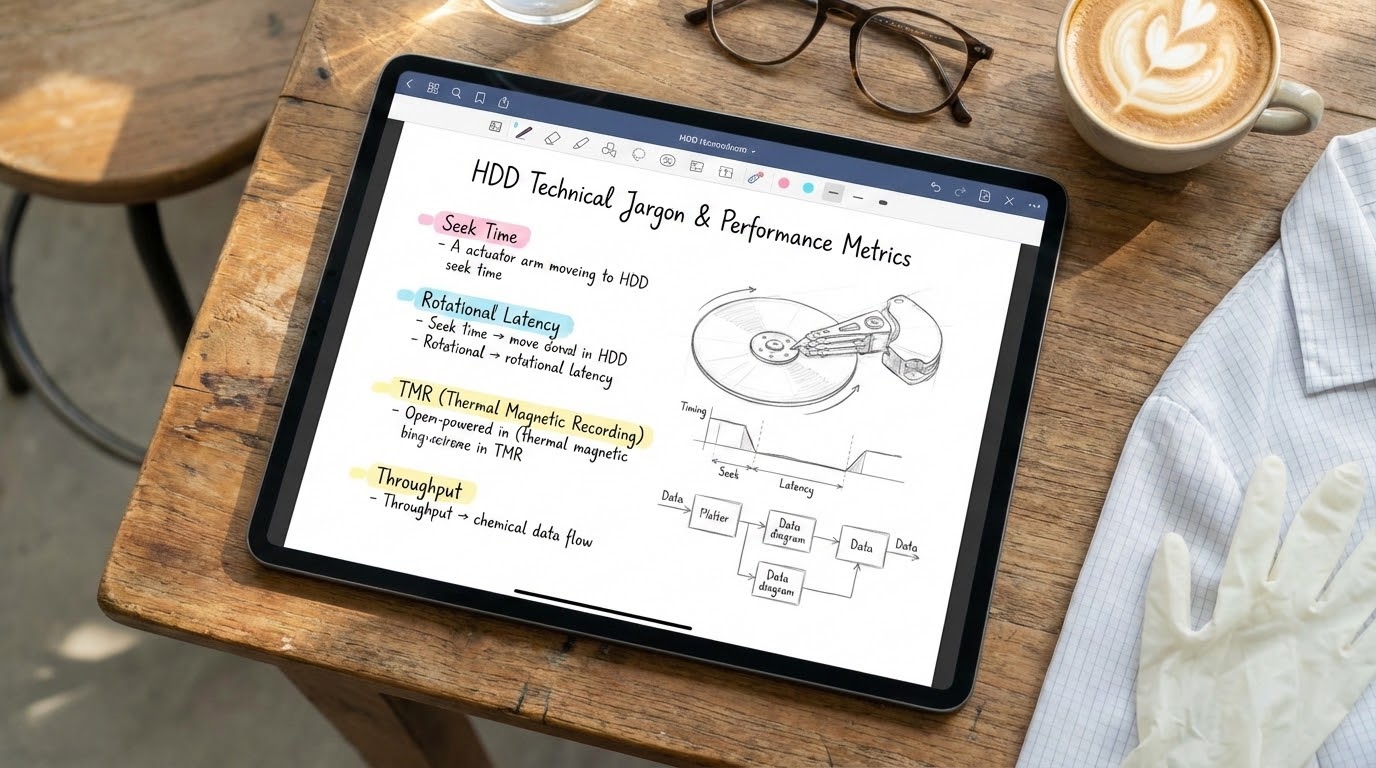 HDD
HDD Technical Jargon & Performance Metrics
Seek Time
- A actuator arm moveing to HDD
seek time
Rotational Latency
- Seek time → move in HDD
- Rotational → rotational latency
TMR (Thermal Magnetic Recording)
- Open-powered in (thermal magnetic
in TMR
Throughput
- Throughput → chemical data flow
Timing
Seek
Latency
Data
Platter
Data
diagram
Data
Data
Data
diagram